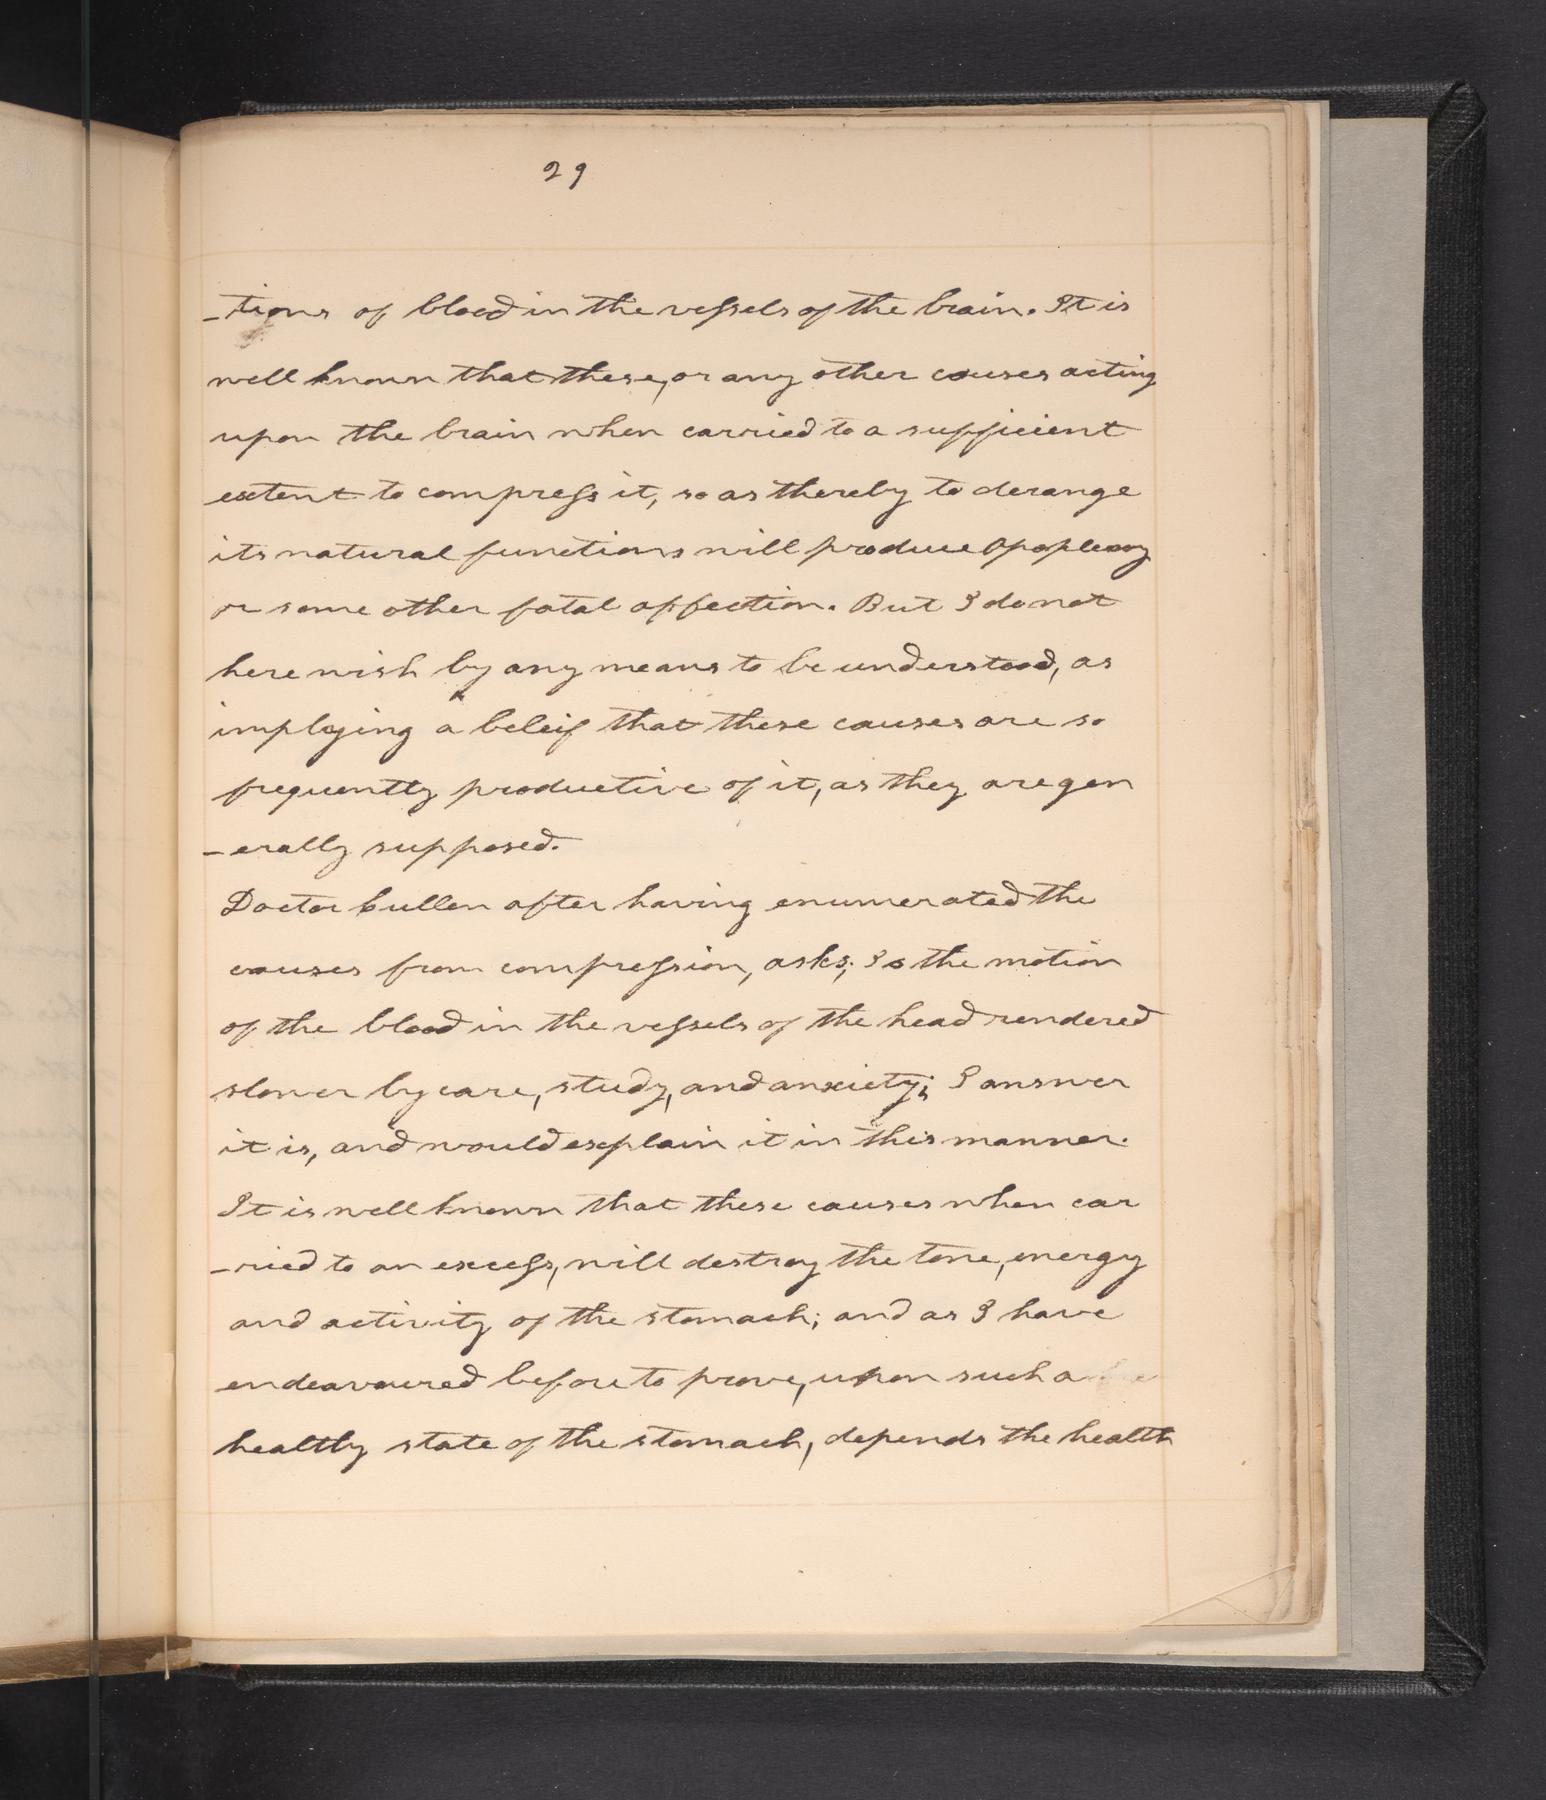 29
-tions of blood in the vessels of the brain. It is
well known that these, or any other causes acting
upon the brain when carried to a sufficient
extent to compress it, so as thereby to derange
its natural functions will produce Apoplexy
or some other fatal affection. But I do not
here wish by any means to be understood, as
implying a beleif that these causes are so
frequently productive of it, as they are gen
-erally supposed.
Doctor Cullen after having enumerated the
causes from compression, asks; Is the motion
of the blood in the vessels of the head rendered
slower by care, study, and anxiety; I answer
it is, and would explain it in this manner.
It is well known that these causes when car
-ried to an excess, will destroy the tone, energy
and activity of the stomach; and as I have
endeavoured before to prove, upon such a
healthy state of the stomach, depends the health